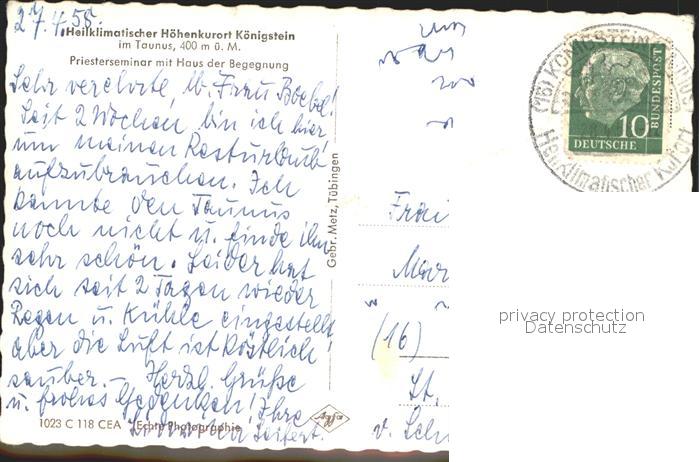 27.4.58.
Heilklimatischer Höhenkurort Königstein
im Taunus, 400 m ü. M.
Priesterseminar mit Haus der Begegnung
Sehr verehrte, lb. Frau Boebel!
Seit 2 Wochen bin ich hier,
um meinen Resturlaub
aufzubrauchen. Ich
kannte den Taunus
noch nicht u. finde ihn
sehr schön. Leider hat
sich seit 2 Tagen wieder
Regen u. Kühle eingestellt,
aber die Luft ist köstlich
sauber. – Herzl. Grüße
u. frohes Gedenken! Ihre
Seifert.
1023 C 118 CEA Echte Photographie
Agfa
Gebr. Metz, Tübingen
(16) KÖNIGSTEIN
Heilklimatischer Kurort
10
DEUTSCHE
BUNDESPOST
Frau
Mar
(16)
St.
v. Sch
privacy protection
Datenschutz